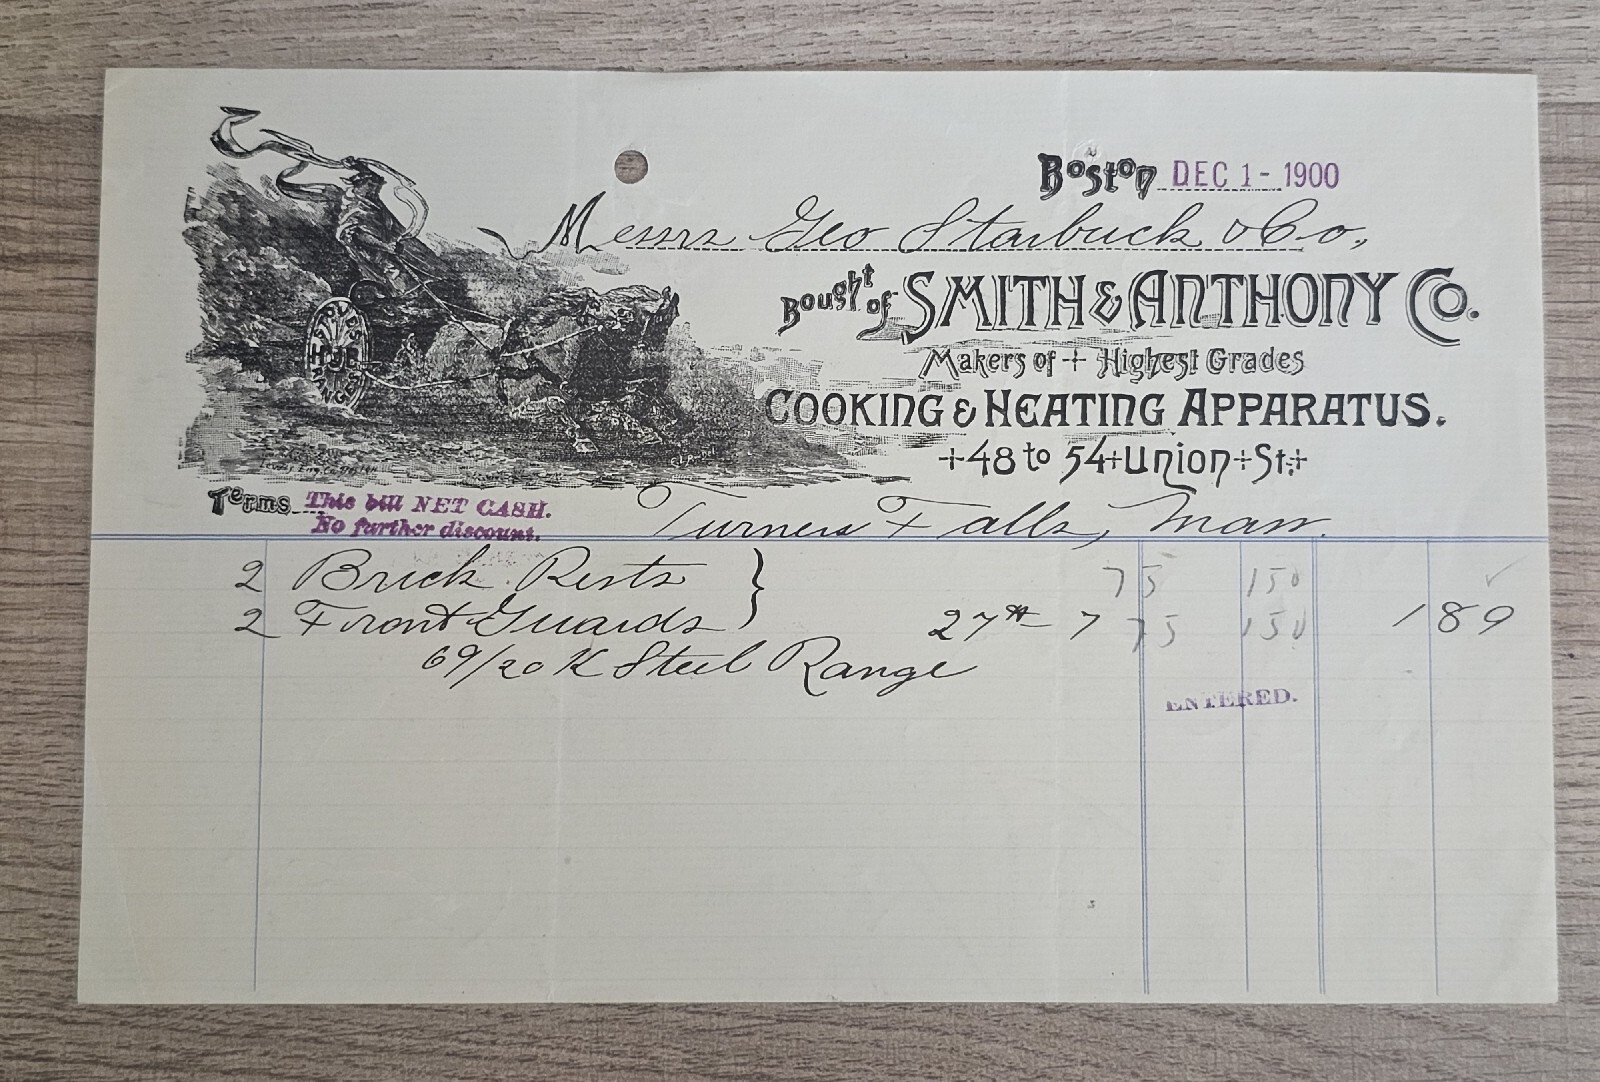 Boston DEC 1 - 1900
Messrs Geo Starbuck & Co.,
Bought of SMITH & ANTHONY CO.
Makers of + Highest Grades
COOKING & HEATING APPARATUS.
+48 to 54+Union+St.+
Terms This bill NET CASH.
No further discount.
Turners Falls, Mass.
2 Brick Rests } 75 150
2 Front Guards 27# 7 75 150 1 89
69/20 K Steel Range
ENTERED.
HUB